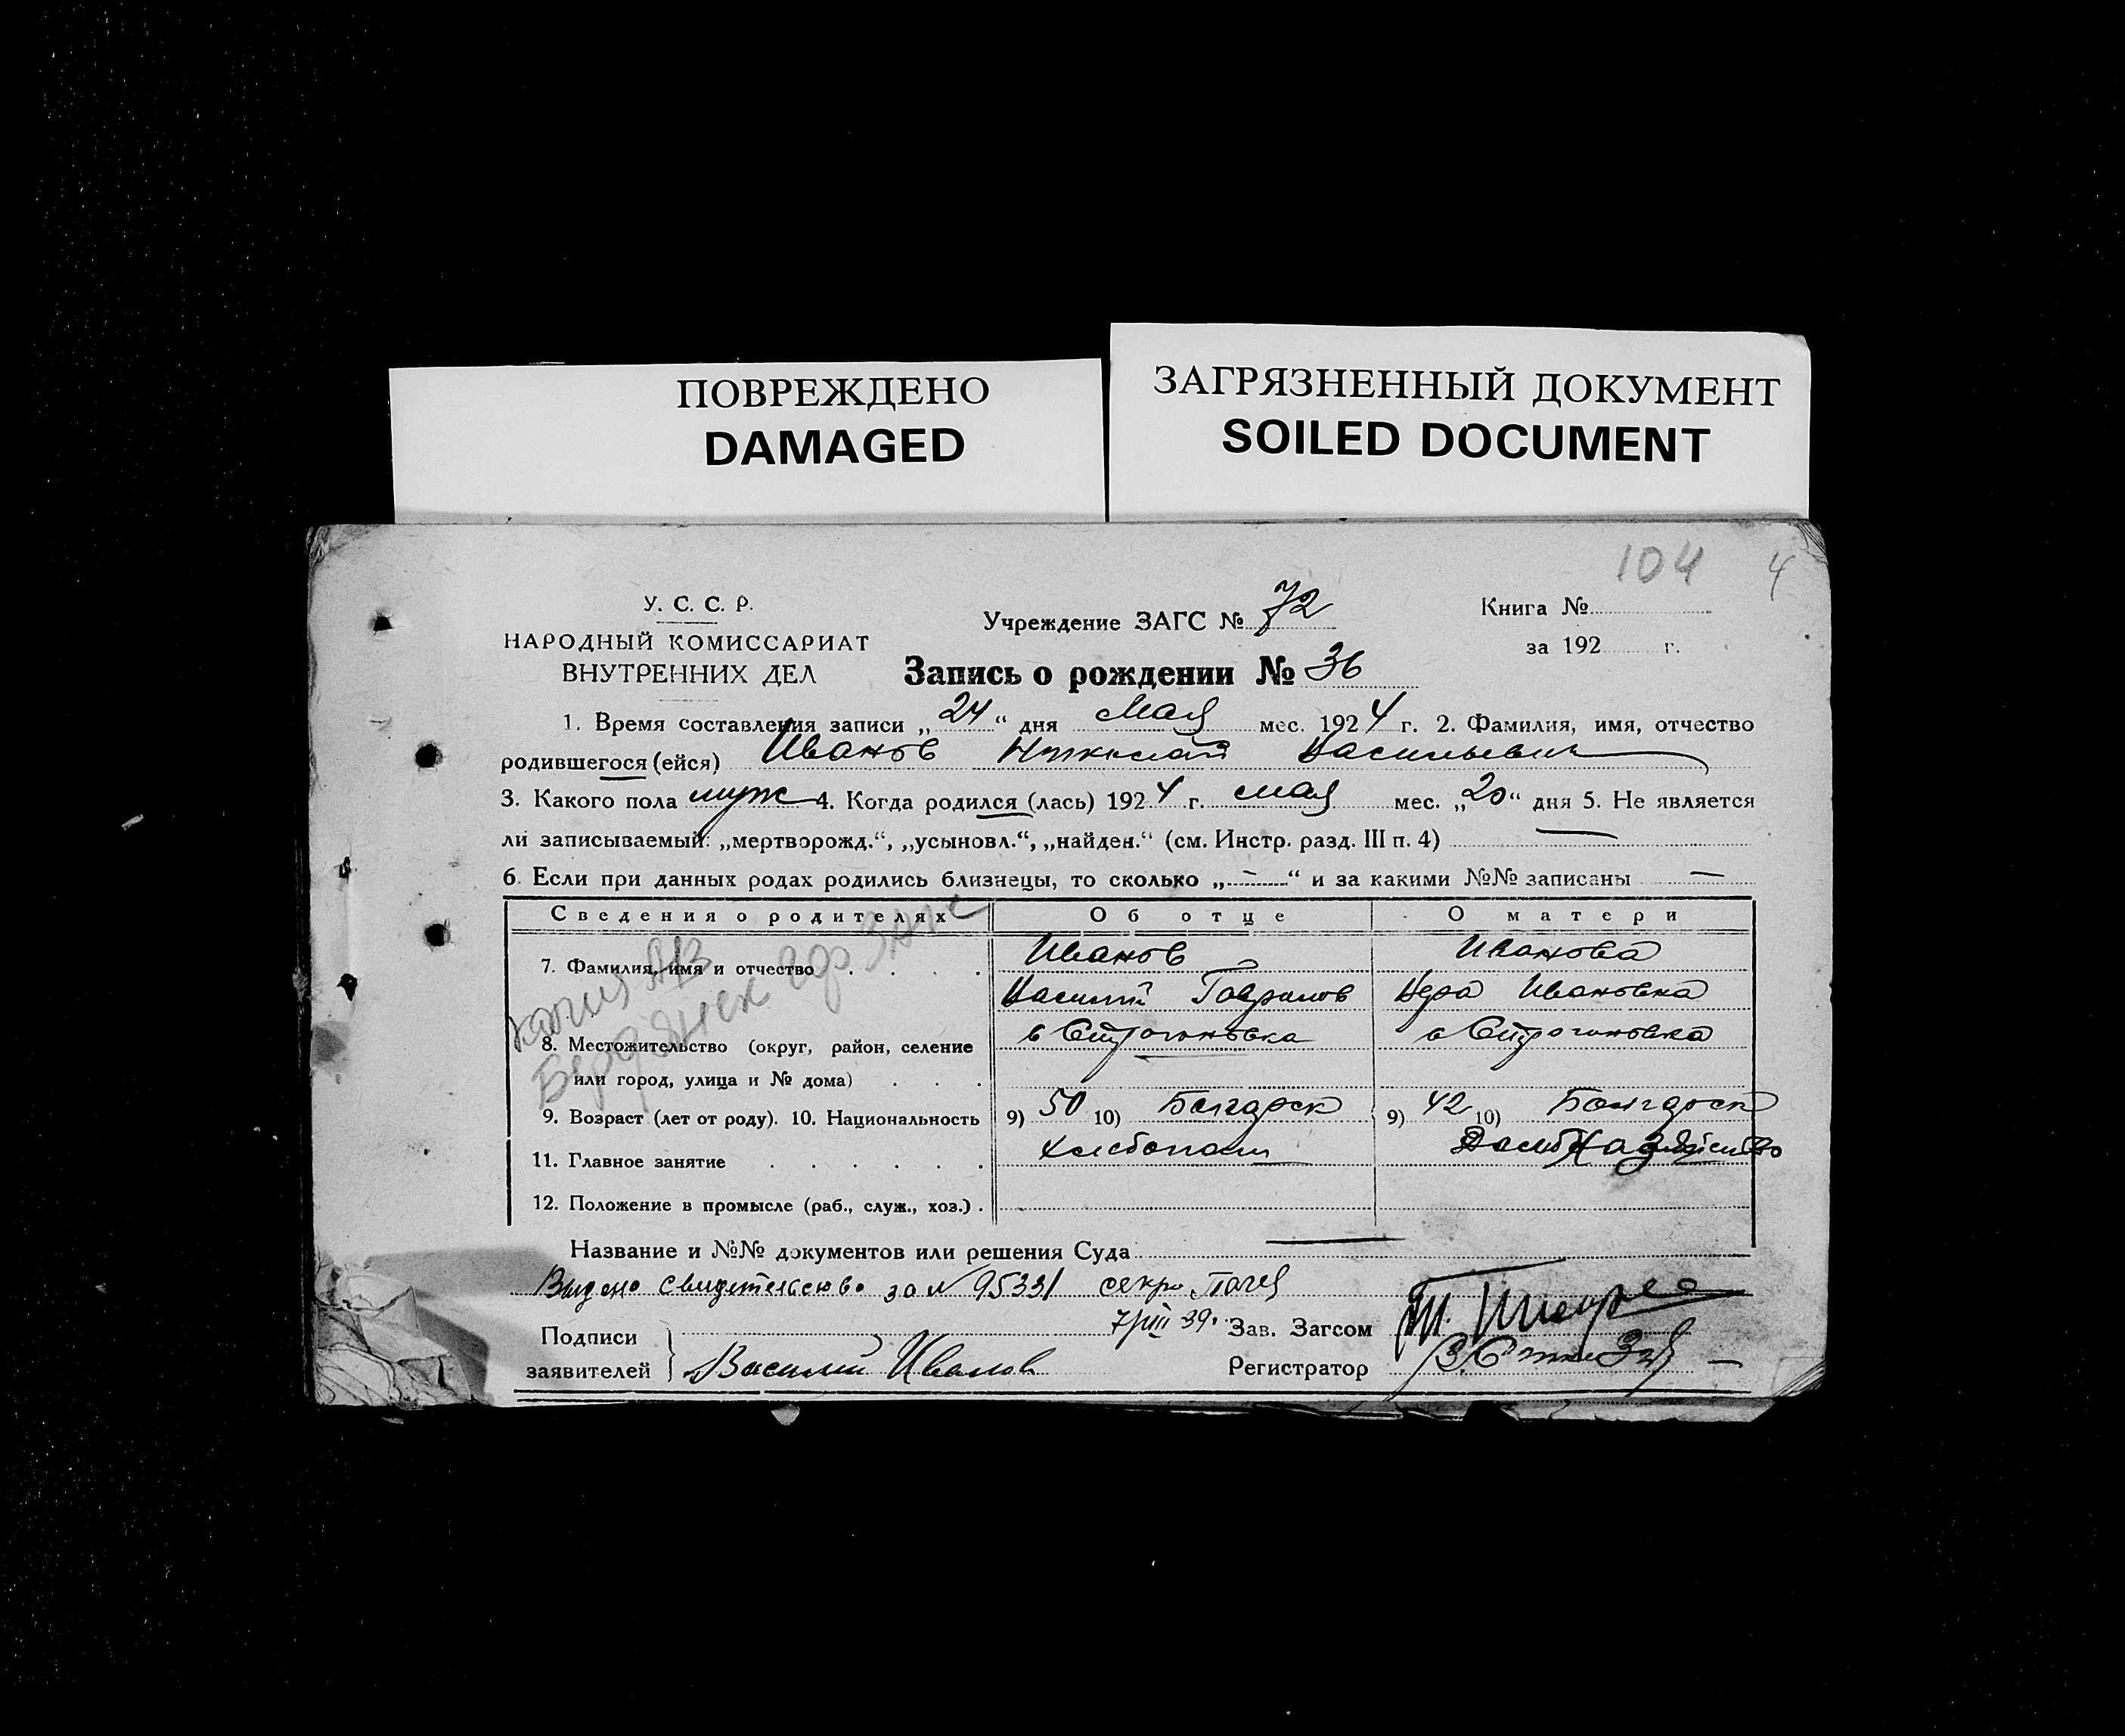 ПОВРЕЖДЕНО
DAMAGED
ЗАГРЯЗНЕННЫЙ ДОКУМЕНТ
SOILED DOCUMENT
104 4
У. С. С. Р.
НАРОДНЫЙ КОМИССАРИАТ
ВНУТРЕННИХ ДЕЛ
Учреждение ЗАГС № 72
Запись о рождении № 36
Книга №
за 192 г.
1. Время составления записи „24“ дня Мая мес. 1924 г. 2. Фамилия, имя, отчество
родившегося (ейся) Иванов Николай Васильевич
3. Какого пола муж 4. Когда родился (лась) 1924 г. мая мес. „20“ дня 5. Не является
ли записываемый: „мертворожд.“, „усыновл.“, „найден.“ (см. Инстр. разд. III п. 4) —
6. Если при данных родах родились близнецы, то сколько „—“ и за какими №№ записаны —
Сведения о родителях Об отце О матери
7. Фамилия, имя и отчество Иванов Иванова
Василий Гаврилов Вера Ивановна
8. Местожительство (округ, район, селение в Строгоновка в Строгоновка
или город, улица и № дома)
9. Возраст (лет от роду). 10. Национальность 9) 50 10) Болгарск 9) 42 10) Болгарск
11. Главное занятие хлебопаш
12. Положение в промысле (раб., служ., хоз.)
Название и №№ документов или решения Суда —
Выдано свидетельство за № 95331
7/VIII 39.
Подписи
заявителей Василий Иванов
Зав. Загсом
Регистратор